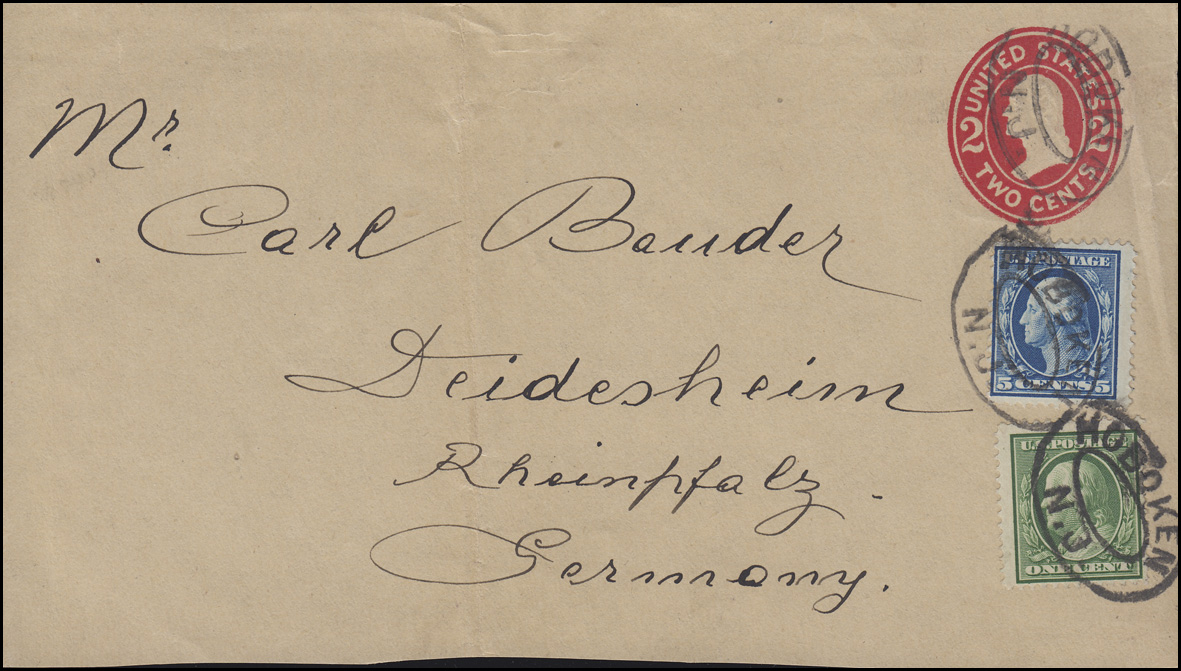 UNITED STATES
2 2
TWO CENTS
HOBOKEN
Mr.
Carl Bauder
U.S. POSTAGE
5 CENTS 5
HOBOKEN N.J.
Deidesheim
Rheinpfalz.
Germany.
U.S. POSTAGE
ONE CENT
HOBOKEN N.J.